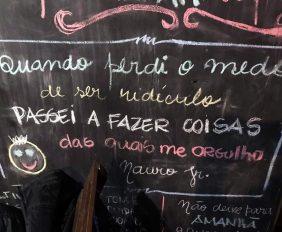 Quando perdi o medo
de ser ridículo,
PASSEI A FAZER COISAS
das quais me orgulho
Não deixe para
AMANHÃ